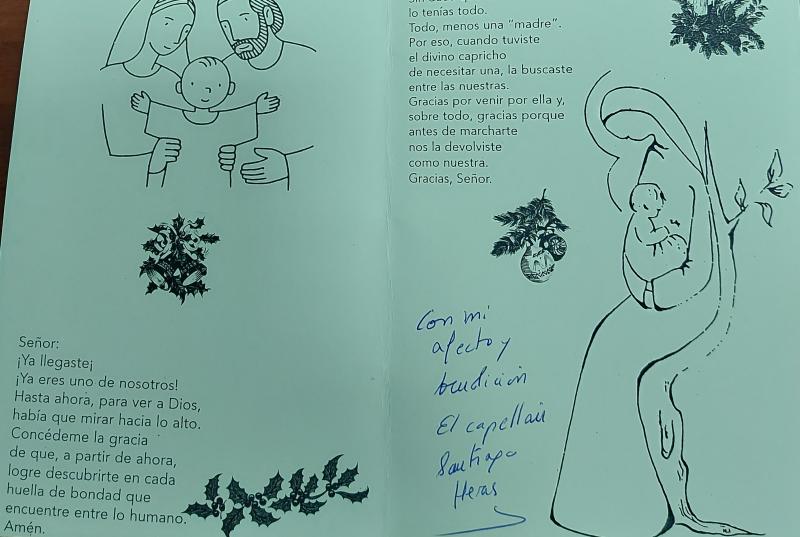 Señor:
¡Ya llegaste¡
¡Ya eres uno de nosotros!
Hasta ahora, para ver a Dios,
había que mirar hacia lo alto.
Concédeme la gracia
de que, a partir de ahora,
logre descubrirte en cada
huella de bondad que
encuentre entre lo humano.
Amén.
lo tenías todo.
Todo, menos una “madre”.
Por eso, cuando tuviste
el divino capricho
de necesitar una, la buscaste
entre las nuestras.
Gracias por venir por ella y,
sobre todo, gracias porque
antes de marcharte
nos la devolviste
como nuestra.
Gracias, Señor.
Con mi
afecto y
bendición
El capellán
Santiago
Heras